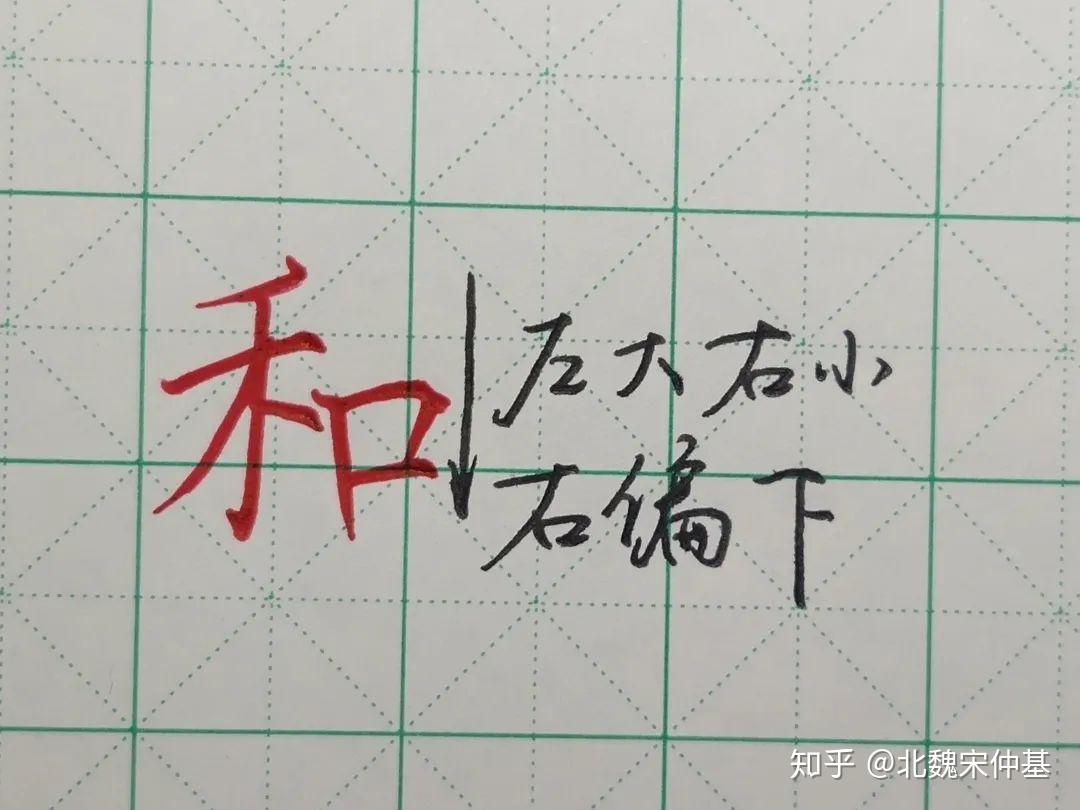 和
左大右小
右偏下
知乎 @北魏宋仲基